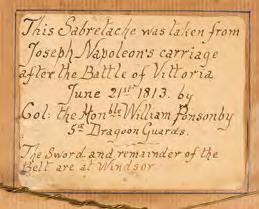 This Sabretache was taken from
Joseph Napoleon's carriage
after the Battle of Vittoria
June 21st 1813. by
Col: the Honble William Ponsonby
5th Dragoon Guards.
The Sword and remainder of the
Belt are at Windsor